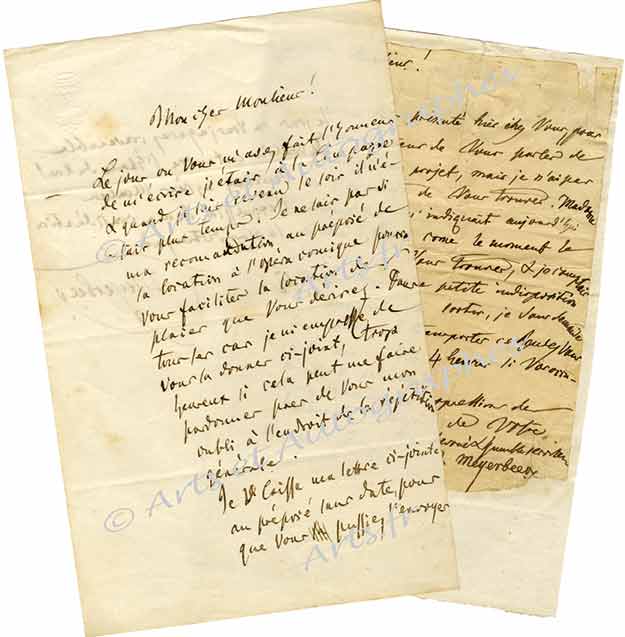 Mon cher Monsieur!
Le jour ou Vous m'avez fait l'honneur
de m'ecrire j'étais à la campagne
& quand je suis revenu le soir il n'é-
-tait plus temps. Je ne sais pas si
ma recomandation au préposé de
la location à l'opéra comique pourra
Vous faciliter la location de
places que Vous desirez. Dans
tous les cas je m'empresse de
vous la donner ci-joint, trop
heureux si cela peut me faire
pardonner près de Vous mon
oubli à l'endroit de la répétition
générale.
Je laisse ma lettre ci-jointe
au préposé sans date, pour
que Vous puissiez l'envoyer
présenté hier chez Vous, pour
de Vous parler de
projet, mais je n'ai pas
de Vous trouver. Madame
indiquait aujourd'hui
come le moment le
Vous trouver, & j'
petite indisposition
sortir, je Vous demande
emporter ce
4 heures si Vous
expressions de
de Votre
& humble serviteur
Meyerbeer
© Arts et Autographes
Arts.fr
© Arts et Autographes
Arts.fr